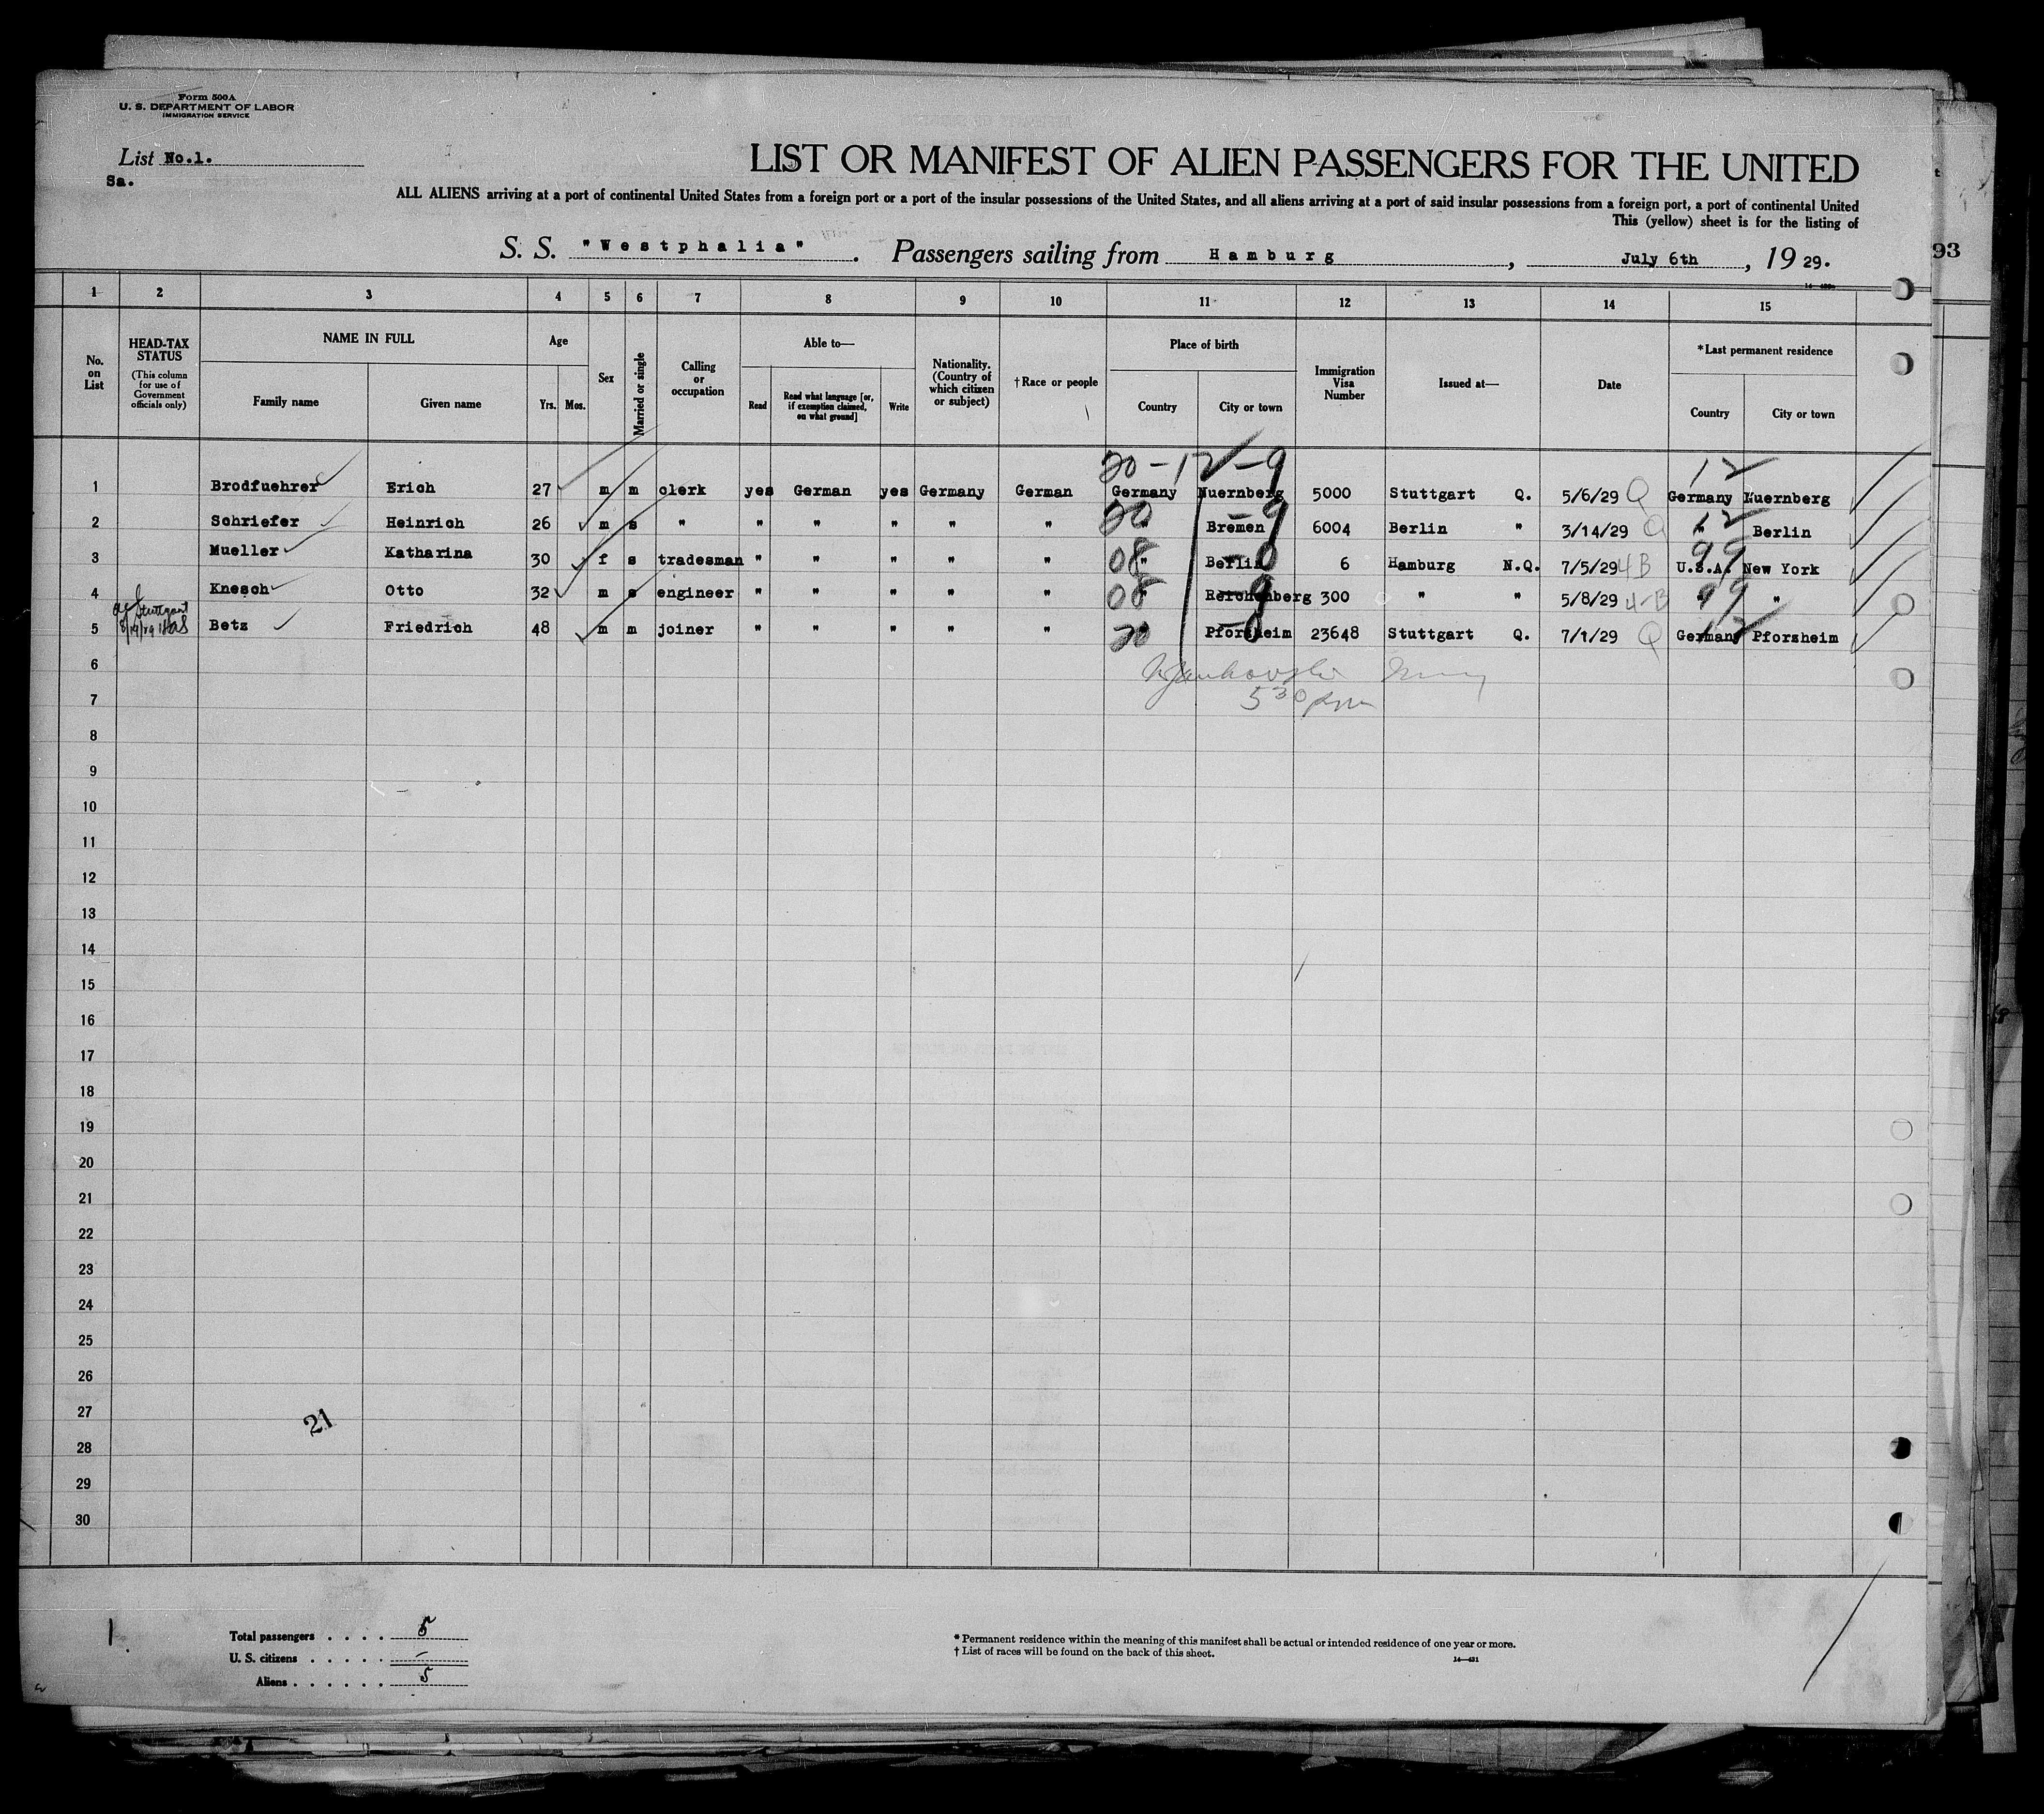 Form 500A
U. S. DEPARTMENT OF LABOR
IMMIGRATION SERVICE
List No.1.
Sa.
LIST OR MANIFEST OF ALIEN PASSENGERS FOR THE UNITED
ALL ALIENS arriving at a port of continental United States from a foreign port or a port of the insular possessions of the United States, and all aliens arriving at a port of said insular possessions from a foreign port, a port of continental United
This (yellow) sheet is for the listing of
S. S. "Westphalia". Passengers sailing from Hamburg, July 6th, 19 29.
93
1 2 3 4 5 6 7 8 9 10 11 12 13 14 15
No. on List
HEAD-TAX STATUS
(This column for use of Government officials only)
NAME IN FULL
Family name Given name
Age
Yrs. Mos.
Sex
Married or single
Calling or occupation
Able to—
Read
Read what language [or, if exemption claimed, on what ground]
Write
Nationality. (Country of which citizen or subject)
† Race or people
Place of birth
Country City or town
Immigration Visa Number
Issued at—
Date
* Last permanent residence
Country City or town
20-12-9 12
1 Brodfuehrer Erich 27 m m clerk yes German yes Germany German Germany Nuernberg 5000 Stuttgart Q. 5/6/29 Q Germany Nuernberg
20 -9 12
2 Schriefer Heinrich 26 m s " " " " " " " Bremen 6004 Berlin " 3/14/29 Q " Berlin
08 -0 99
3 Mueller Katharina 30 f s tradesman " " " " " " Berlin 6 Hamburg N.Q. 7/5/29 4B U.S.A. New York
08 -9 99
4 Knesch Otto 32 m s engineer " " " " " " Reichenberg 300 " " 5/8/29 4-B " "
Stuttgart
20 -8 12
5 Betz Friedrich 48 m m joiner " " " " " " Pforzheim 23648 Stuttgart Q. 7/1/29 Q Germany Pforzheim
6
5 30 pm
7
8
9
10
11
12
13
14
15
16
17
18
19
20
21
22
23
24
25
26
27
21
28
29
30
1
Total passengers . . . . 5
U. S. citizens . . . . . –
Aliens . . . . . . 5
* Permanent residence within the meaning of this manifest shall be actual or intended residence of one year or more.
† List of races will be found on the back of this sheet.
14—431